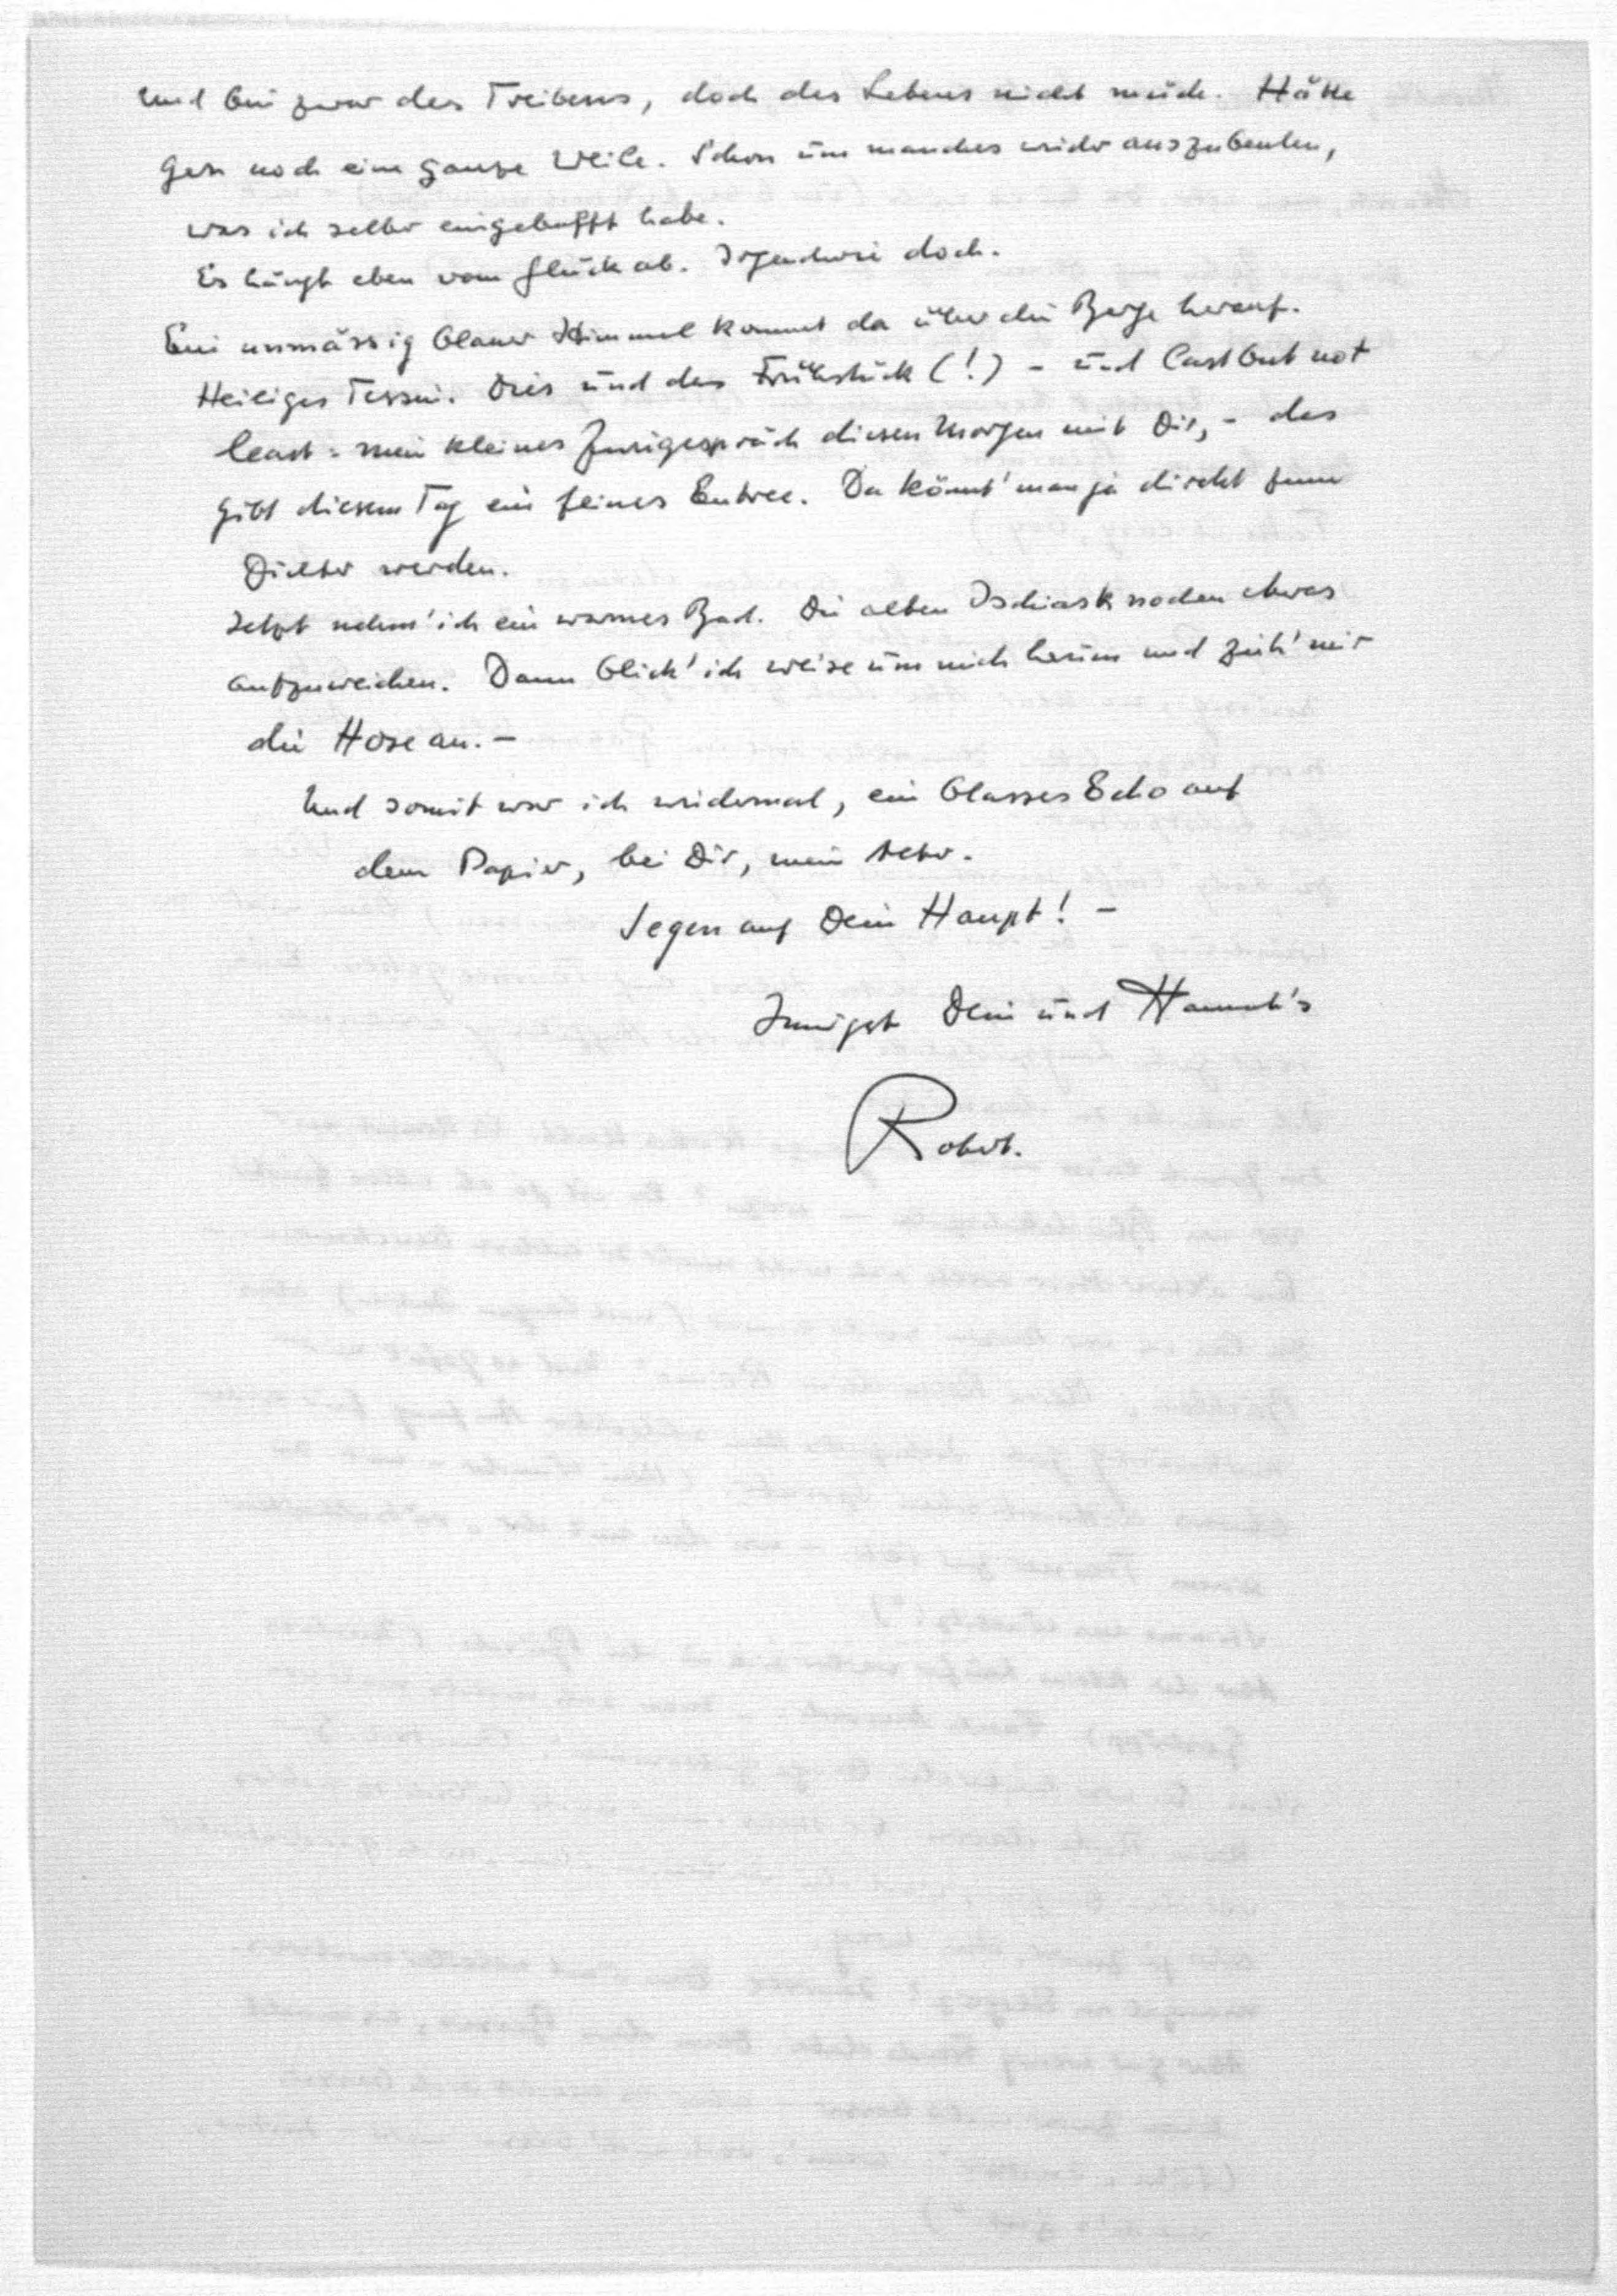 Und bin zwar des Treibens, doch des Lebens nicht müde. Hätte
gern noch eine ganze Weile. Schon um manches wider auszubeulen,
was ich selber eingebufft habe.
Es hängt eben vom Glück ab. Irgendwie doch.
Ein unmässig blauer Himmel kommt da über die Berge herauf.
Heiliges Tessin. Dies und das Frühstück (!) – und last but not
least: mein kleines Zwigespräch diesen Morgen mit Dir, – das
gibt diesem Tag ein feines Entree. Da könnt' man ja direkt zum
Dichter werden.
Jetzt nehm' ich ein warmes Bad. Die alten Ischiasknochen etwas
aufzuweichen. Dann blick' ich weise um mich herum und zieh' mir
die Hose an. –
Und somit war ich widermal, ein blasses Echo auf
dem Papier, bei Dir, mein
Segen auf Dein Haupt! –
Innigst Dein und Hannah's
Robert.